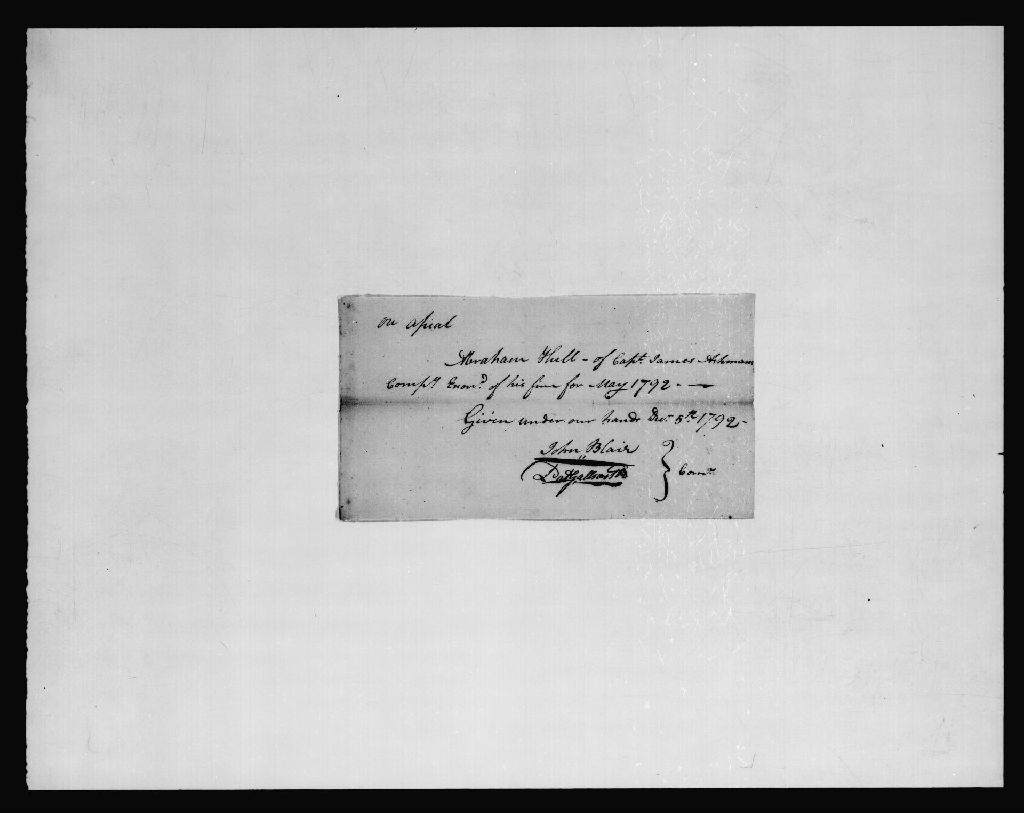 on apeal
Abraham Hull - of Capt. James Ackman
Compy. Exond. of his fine for May 1792 - —
Given under our hands Decr. 5th 1792 -
John Blair
} Comrs.